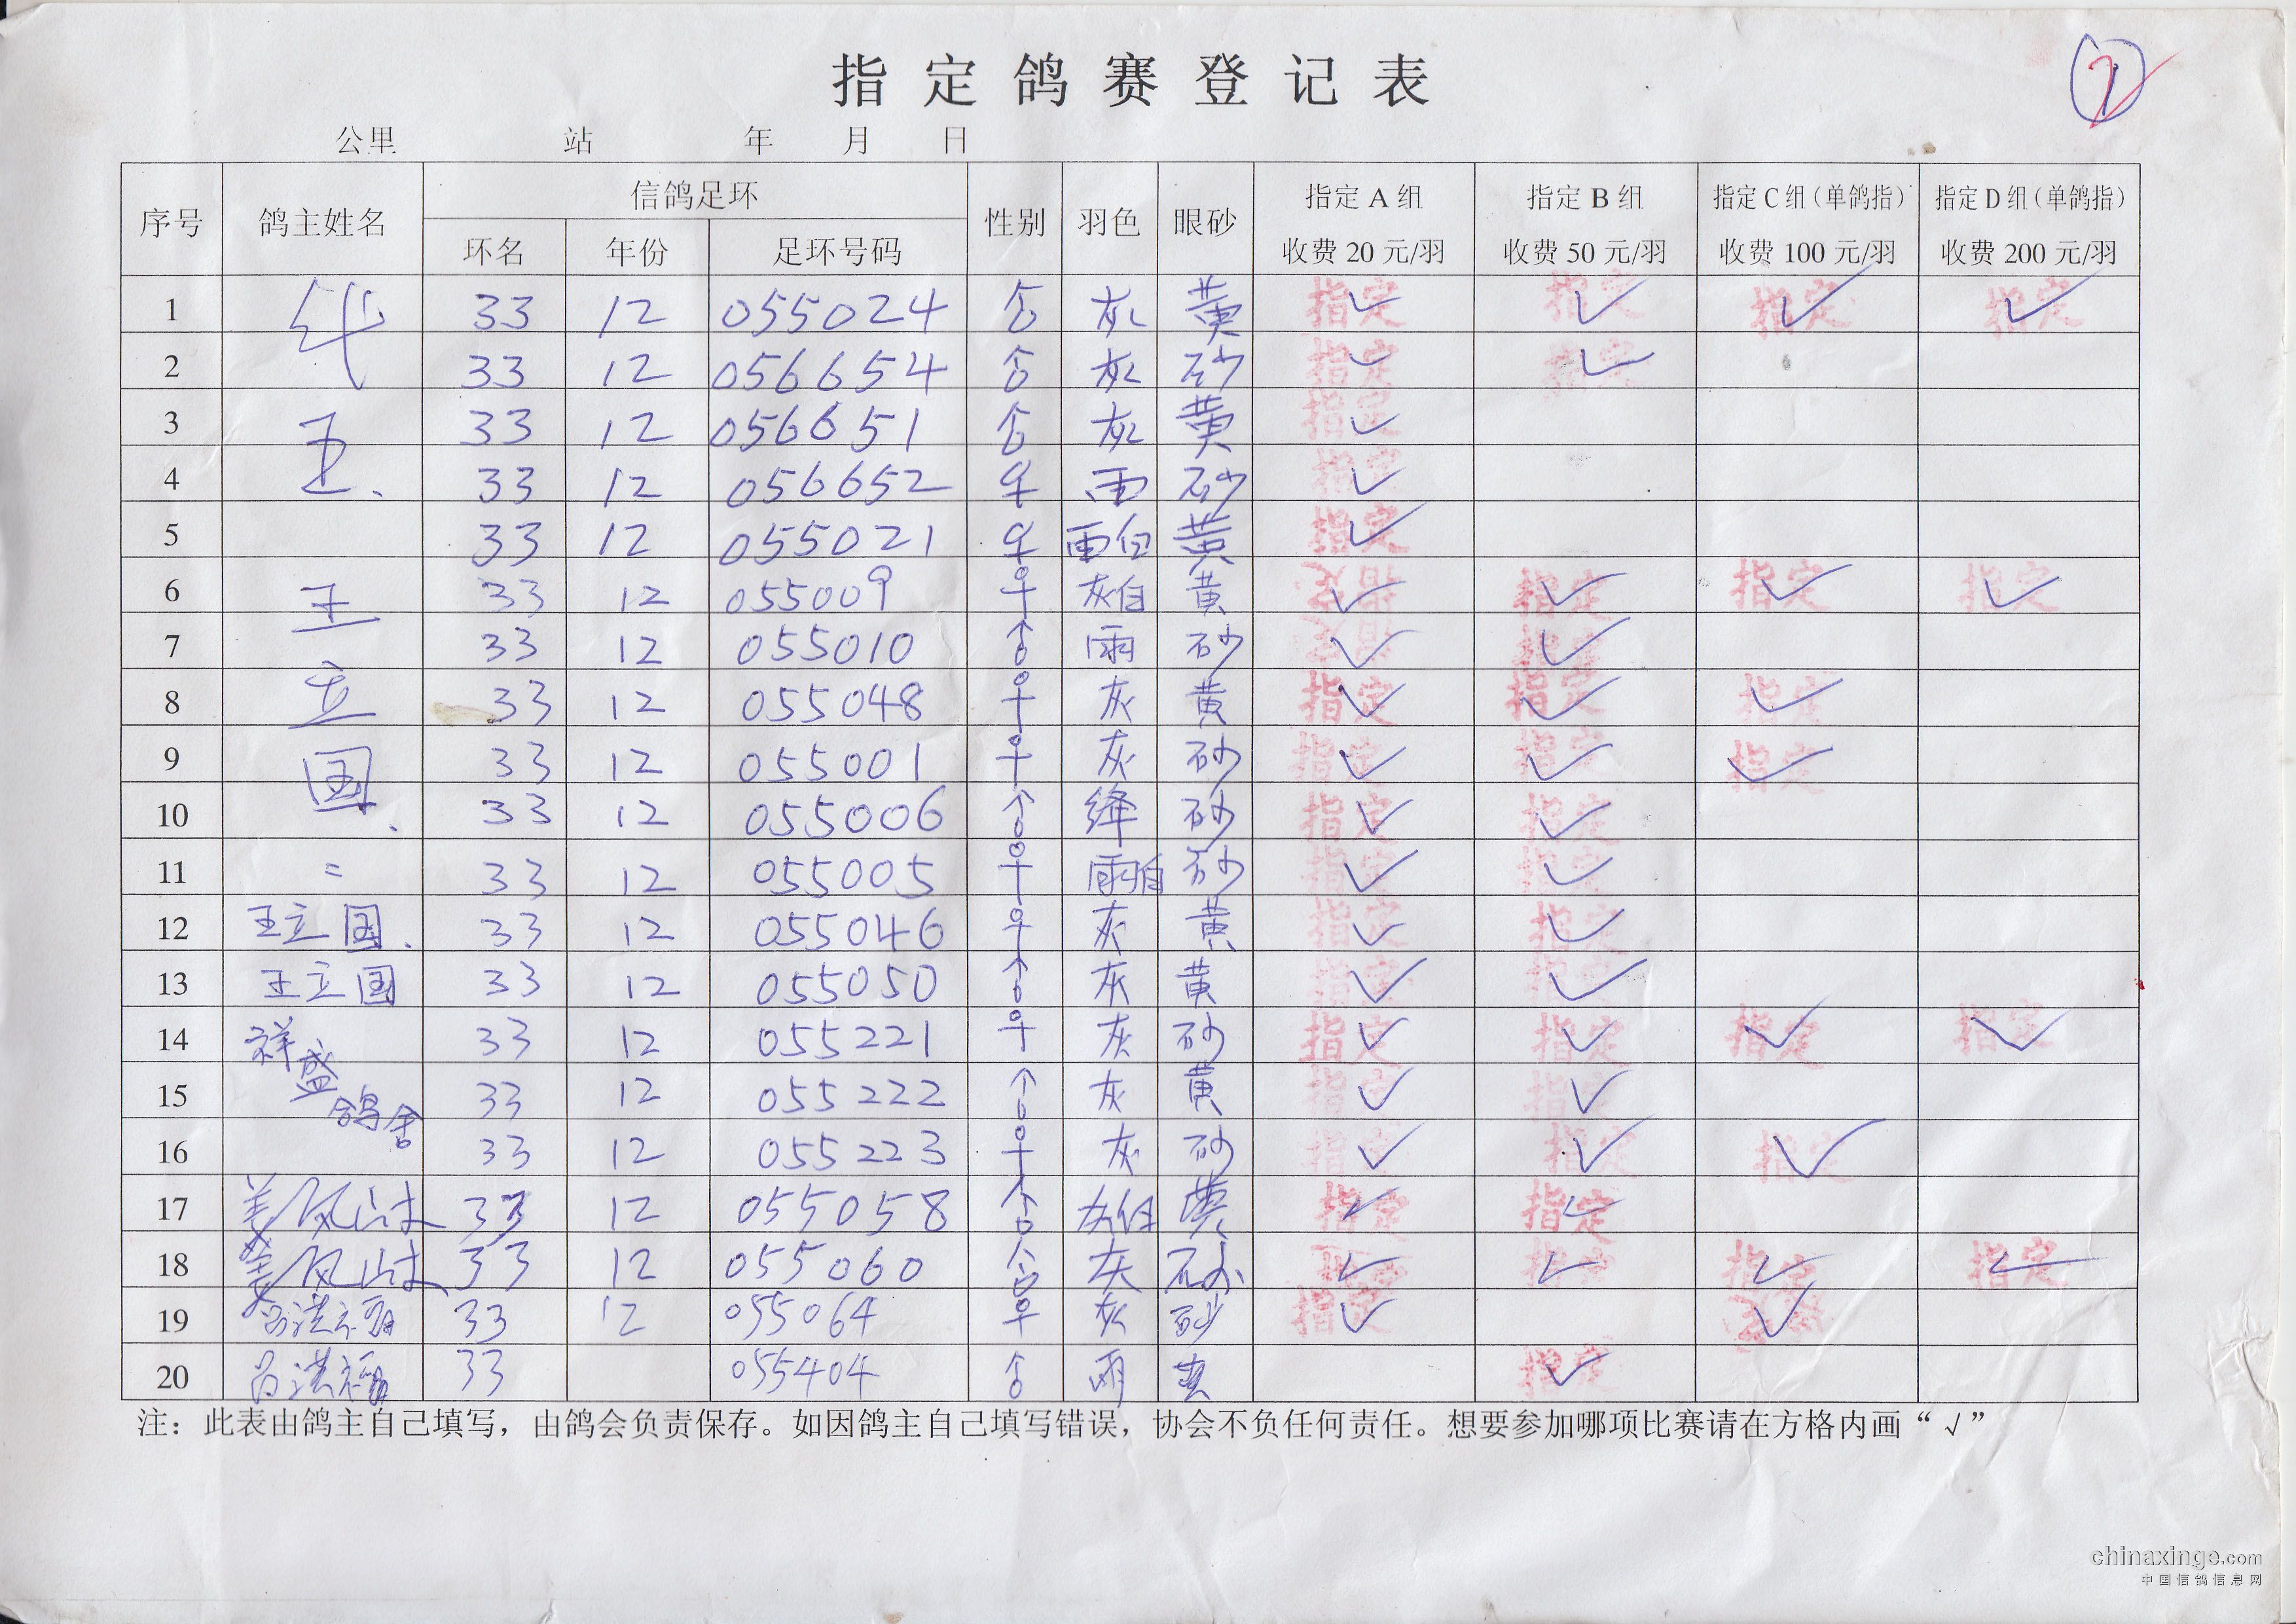 指定鸽赛登记表
公里 站 年 月 日
序号 鸽主姓名 信鸽足环 性别 羽色 眼砂 指定A组 指定B组 指定C组(单鸽指) 指定D组(单鸽指)
环名 年份 足环号码 收费20元/羽 收费50元/羽 收费100元/羽 收费200元/羽
1 33 12 055024 ♂ 灰 黄 指定 ✓ 指定 ✓ 指定 ✓ 指定 ✓
2 33 12 056654 ♂ 灰 砂 指定 ✓ 指定 ✓
3 33 12 056651 ♂ 灰 黄 指定 ✓
4 33 12 056652 ♀ 雨 砂 指定 ✓
5 33 12 055021 ♀ 雨白 黄 指定 ✓
6 王 33 12 055009 ♀ 灰白 黄 指定 ✓ 指定 ✓ 指定 ✓ 指定 ✓
7 33 12 055010 ♂ 雨 砂 指定 ✓ 指定 ✓
8 立 33 12 055048 ♀ 灰 黄 指定 ✓ 指定 ✓ 指定 ✓
9 国 33 12 055001 ♀ 灰 砂 指定 ✓ 指定 ✓ 指定 ✓
10 33 12 055006 ♂ 绛 砂 指定 ✓ 指定 ✓
11 = 33 12 055005 ♀ 雨白 砂 指定 ✓ 指定 ✓
12 王立国. 33 12 055046 ♀ 灰 黄 指定 ✓ 指定 ✓
13 王立国 33 12 055050 ♂ 灰 黄 指定 ✓ 指定 ✓
14 祥盛鸽舍 33 12 055221 ♀ 灰 砂 指定 ✓ 指定 ✓ 指定 ✓ 指定 ✓
15 33 12 055222 ♂ 灰 黄 指定 ✓ 指定 ✓
16 33 12 055223 ♀ 灰 砂 指定 ✓ 指定 ✓ 指定 ✓
17 33 12 055058 ♂ 黄 指定 ✓ 指定 ✓
18 33 12 055060 ♂ 灰 砂 指定 ✓ 指定 ✓ 指定 ✓ 指定 ✓
19 吕洪福 33 12 055064 ♀ 灰 砂 指定 ✓ 指定 ✓
20 吕洪福 33 055404 ♂ 雨 黄 指定 ✓
注：此表由鸽主自己填写，由鸽会负责保存。如因鸽主自己填写错误，协会不负任何责任。想要参加哪项比赛请在方格内画“√”
chinaxinge.com
中国信鸽信息网